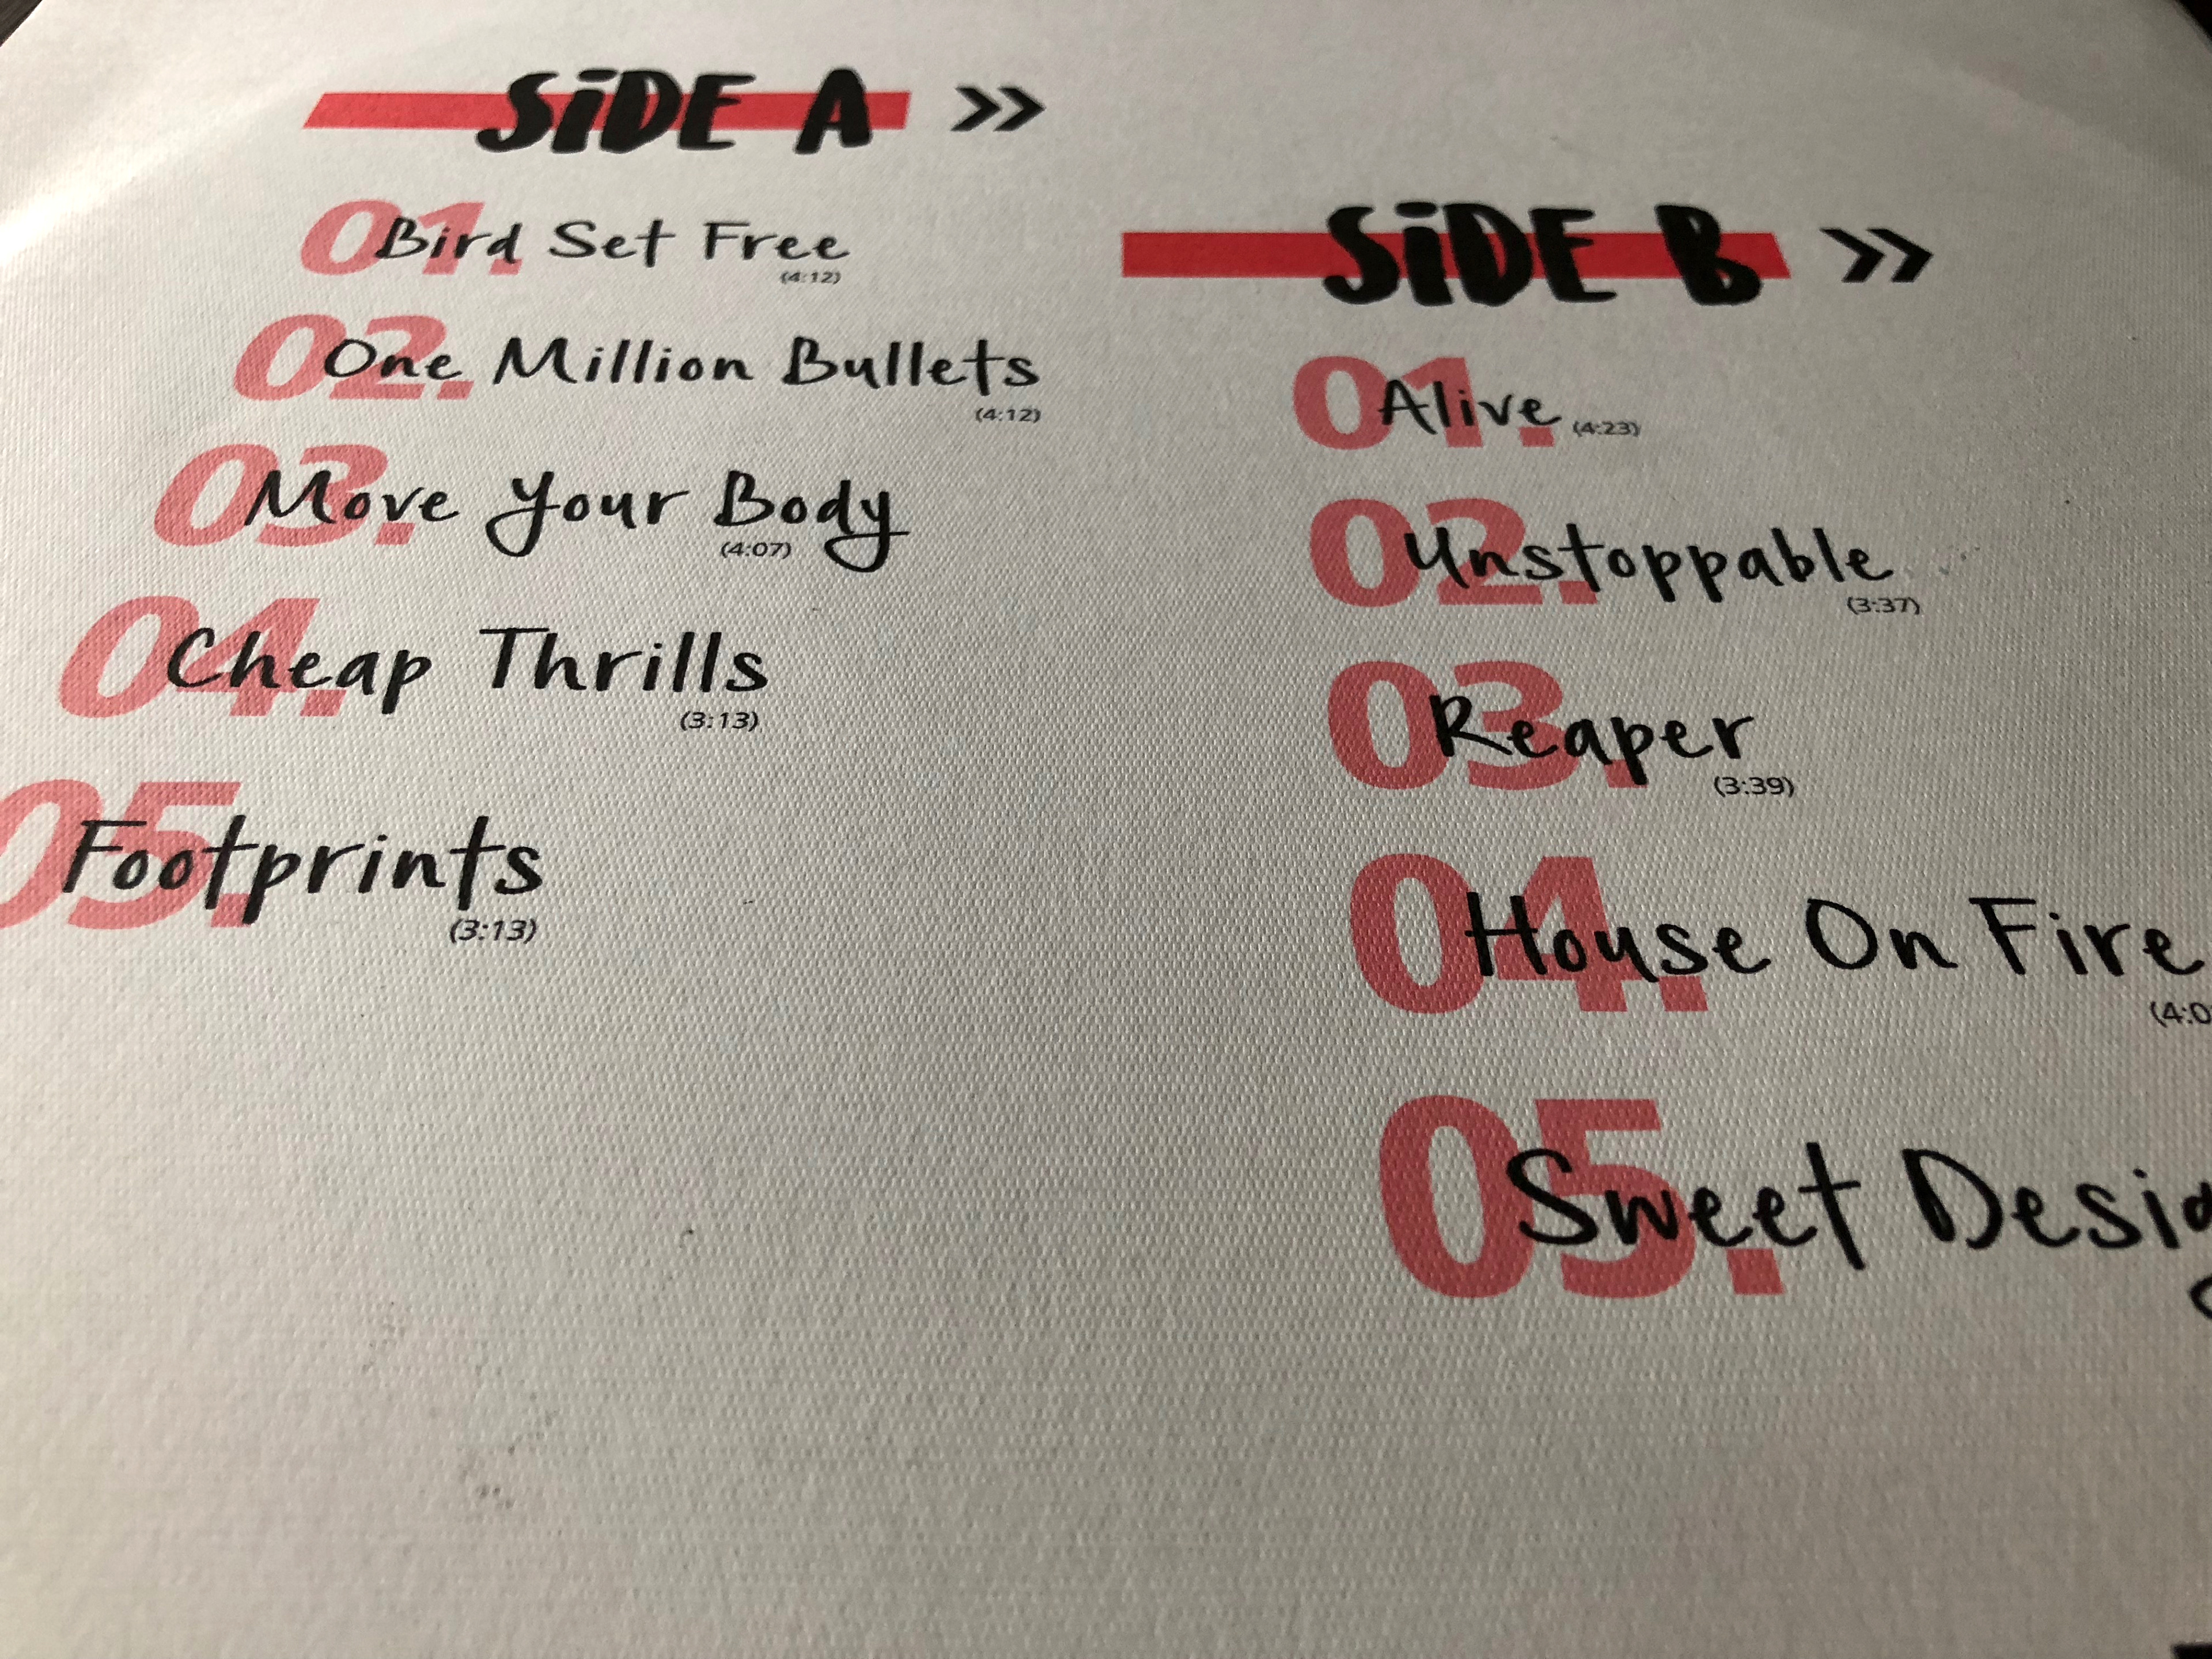 SiDE A >>
01. Bird Set Free
(4:12)
02. One Million Bullets
(4:12)
03. Move Your Body
(4:07)
04. Cheap Thrills
(3:13)
05. Footprints
(3:13)
SiDE B >>
01. Alive (4:23)
02. Unstoppable
(3:37)
03. Reaper
(3:39)
04. House On Fire
05. Sweet